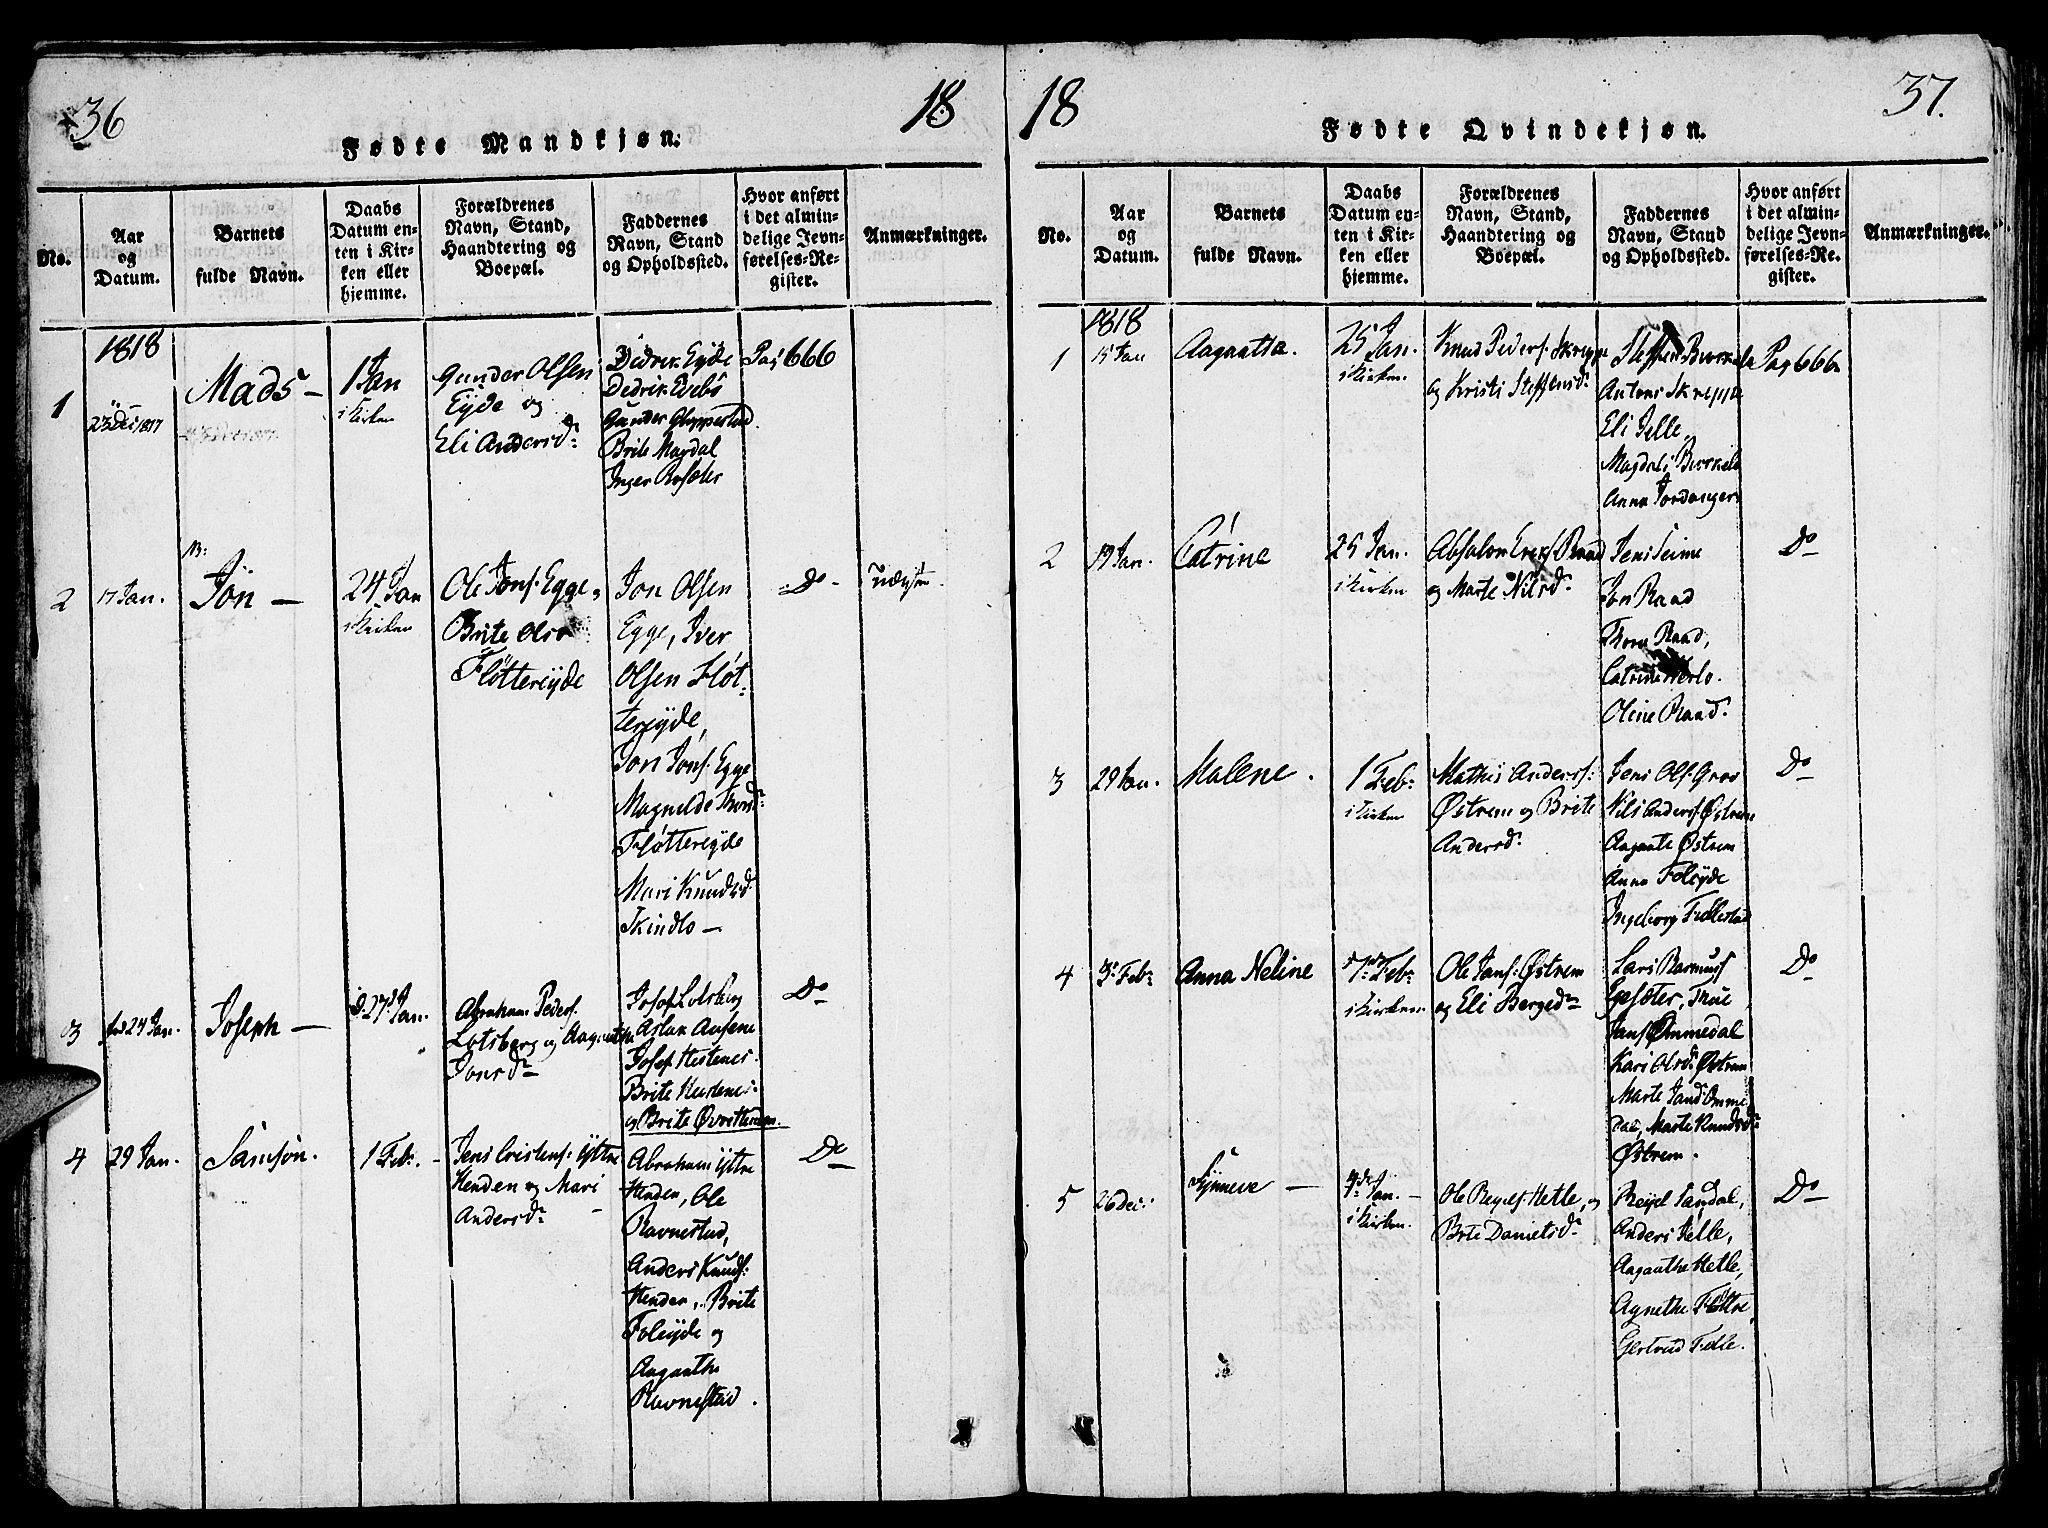 36
18
Fødte Mandkjøn.
No.
Aar
og
Datum.
Barnets
fulde Navn.
Daabs
Datum en-
ten i Kir-
ken eller
hjemme.
Forældrenes
Navn, Stand,
Haandtering og
Boepæl.
Faddernes
Navn, Stand
og Opholdssted.
Hvor anført
i det almin-
delige Jevn-
førelses-Re-
gister.
Anmærkninger.
1818
1
23 Dec 1817
Mads –
1 Jan
i Kirken
Gunder Olsen
Eyde og
Eli Andersd.
Didrik Eyde
Dedrik Edebö
Gunder Gloppestad.
Brite Magdal
Inger Rosæter
Pag 666
2
17 Jan.
Jon –
24 Jan
i Kirken
Ole Jons. Egge,
Brite Olsd
Fløttereyde
Jon Olsen
Egge, Iver
Olsen Fløt-
tereyde,
Jon Jons. Egge
Magnilde
Fløttereyde
Mari Knudsd.
Skindlo –
Do
3
24 Jan.
Joseph –
27 Jan.
Abraham Peders.
Lotsberg og
Jonsd.
Josef Lotsberg
Aslak Aasene
Josef Hestenes.
Brite Hestenes.
og Brite
Do
4
29 Jan.
Samson.
1 Feb.
Jens Cristens. Yttre
Henden og Mari
Andersd.
Abraham Yttre
Henden, Ole
Ravnestad,
Anders Knuds.
Henden, Brite
Foleyde og
Aagaathe
Ravnestad.
Do
18
37.
Fødte Qvindekjøn.
No.
Aar
og
Datum.
Barnets
fulde Navn.
Daabs
Datum en-
ten i Kir-
ken eller
hjemme.
Forældrenes
Navn, Stand,
Haandtering og
Boepæl.
Faddernes
Navn, Stand
og Opholdssted.
Hvor anført
i det almin-
delige Jevn-
førelses-Re-
gister.
Anmærkninger.
1818
1
15 Jan
Aagaatha.
25 Jan.
i Kirken.
Knud Peders. Skreppe
og Kristi Steffensd.
Steffen Birkelo
Antoni Skreppe
Eli Jelle
Magdeli Birkelo
Anna Jordanger
Pag 666
2
19 Jan.
Catrine
25 Jan.
i Kirken
Absalon Raad
og Marte Nilsd.
Jens Seime
Jon Raad
Thore Raad,
Catrine
Oline Raad.
Do
3
29 Jan.
Malene.
1 Feb.
i Kirken
Mathis Anders.
Østrem og Brite
Andersd.
Jens Ols. Groo
Nils Anders. Østrem
Aagaate Østrem
Anna Foleyde
Ingeborg Fellestad
Do
4
3 Feb.
Anna Neline
7 Feb.
i Kirken
Ole Jans. Østrem
og Eli Berged.
Lars Rasmus.
Egesæter,
Jans. Ommedal
Kari Olsd. Østrem
Marte Jansd. Omme
dal, Marte Knudsd.
Østrem.
Do
5
26 Dec.
Synneve –
Jan. –
i Kirken.
Ole Hetle, og
Brte Danielsd.
Sandal,
Anders Jelle,
Aagaathe Hetle,
Agnethe
Gertrud
Do